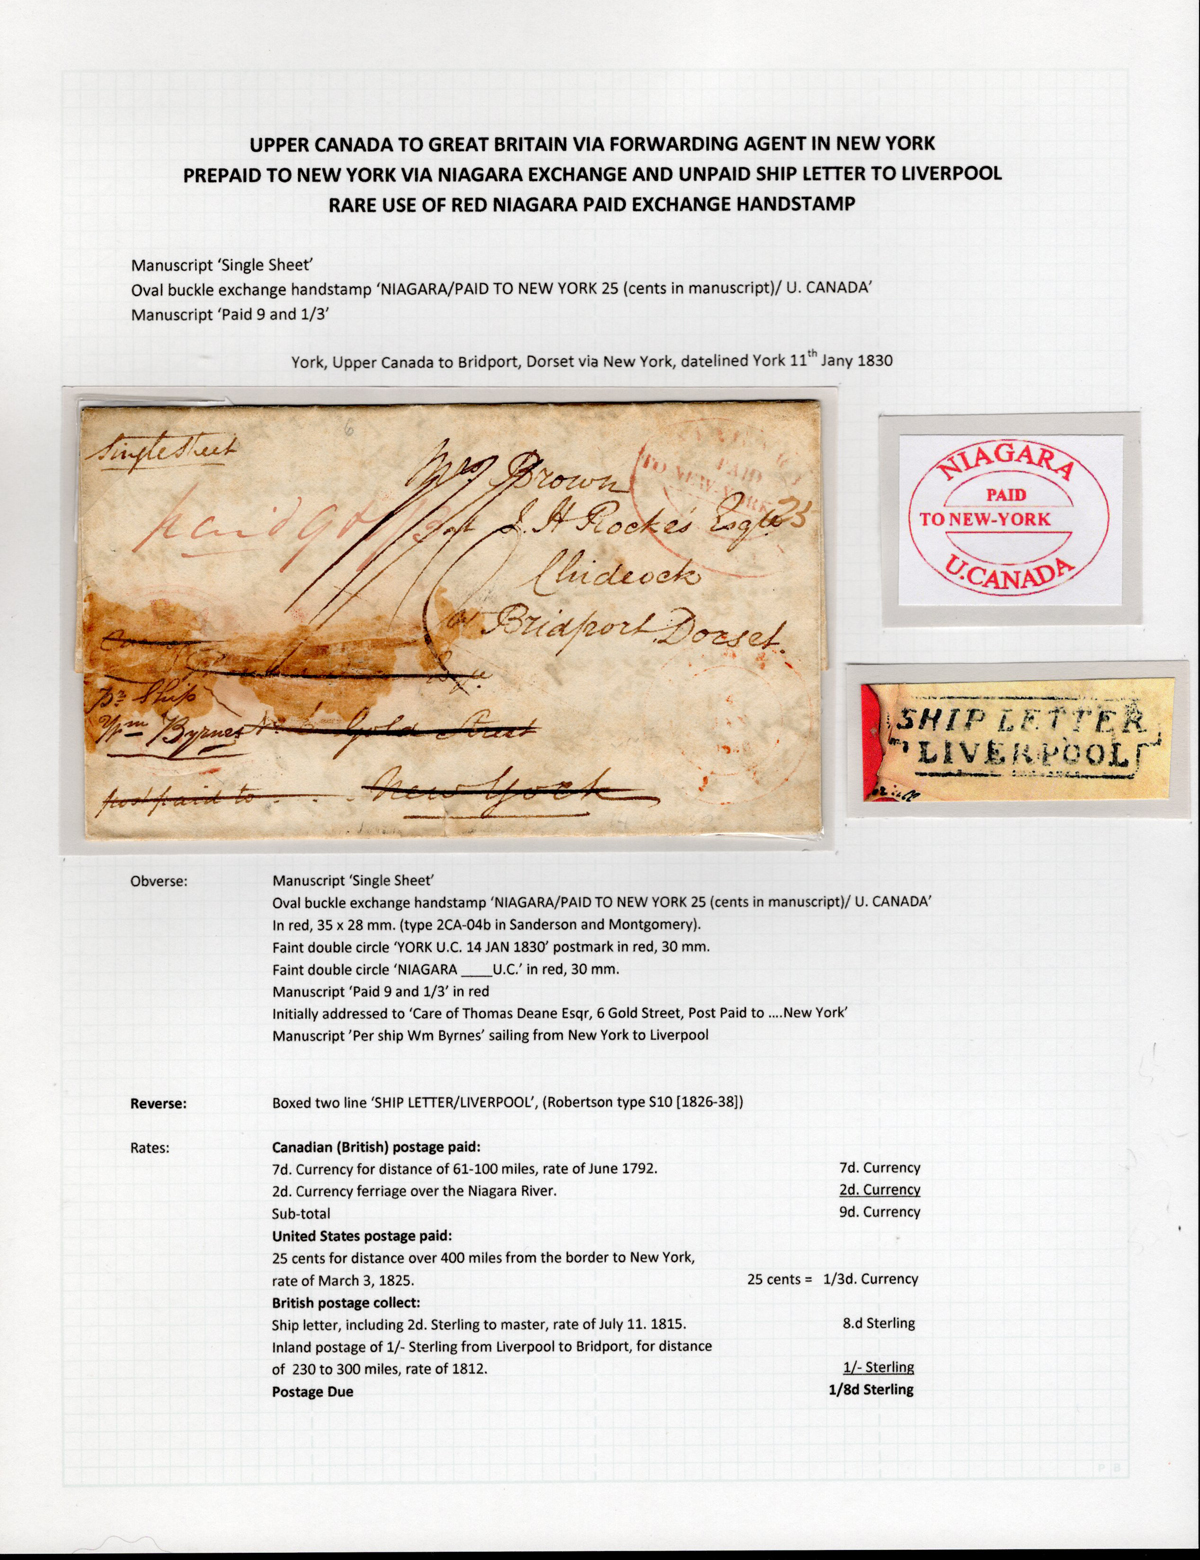 UPPER CANADA TO GREAT BRITAIN VIA FORWARDING AGENT IN NEW YORK
PREPAID TO NEW YORK VIA NIAGARA EXCHANGE AND UNPAID SHIP LETTER TO LIVERPOOL
RARE USE OF RED NIAGARA PAID EXCHANGE HANDSTAMP
Manuscript ‘Single Sheet’
Oval buckle exchange handstamp ‘NIAGARA/PAID TO NEW YORK 25 (cents in manuscript)/ U. CANADA’
Manuscript ‘Paid 9 and 1/3’
York, Upper Canada to Bridport, Dorset via New York, datelined York 11th Jany 1830
Single Sheet
6
Mrs Brown
PAID
TO NEW-YORK
25
paid 9d 1/3
at J. H Rockes Esqre
Chideock
Bridport Dorset.
pr Ship
Wm Byrnes
6 Gold Street
post paid to . . . New York
NIAGARA
PAID
TO NEW-YORK
U.CANADA
SHIP LETTER
LIVERPOOL
Obverse:
Manuscript ‘Single Sheet’
Oval buckle exchange handstamp ‘NIAGARA/PAID TO NEW YORK 25 (cents in manuscript)/ U. CANADA’
In red, 35 x 28 mm. (type 2CA-04b in Sanderson and Montgomery).
Faint double circle ‘YORK U.C. 14 JAN 1830’ postmark in red, 30 mm.
Faint double circle ‘NIAGARA ____U.C.’ in red, 30 mm.
Manuscript ‘Paid 9 and 1/3’ in red
Initially addressed to ‘Care of Thomas Deane Esqr, 6 Gold Street, Post Paid to ….New York’
Manuscript ‘Per ship Wm Byrnes’ sailing from New York to Liverpool
Reverse: Boxed two line ‘SHIP LETTER/LIVERPOOL’, (Robertson type S10 [1826-38])
Rates: Canadian (British) postage paid:
7d. Currency for distance of 61-100 miles, rate of June 1792. 7d. Currency
2d. Currency ferriage over the Niagara River. 2d. Currency
Sub-total 9d. Currency
United States postage paid:
25 cents for distance over 400 miles from the border to New York,
rate of March 3, 1825. 25 cents = 1/3d. Currency
British postage collect:
Ship letter, including 2d. Sterling to master, rate of July 11. 1815. 8.d Sterling
Inland postage of 1/- Sterling from Liverpool to Bridport, for distance
of 230 to 300 miles, rate of 1812. 1/- Sterling
Postage Due 1/8d Sterling